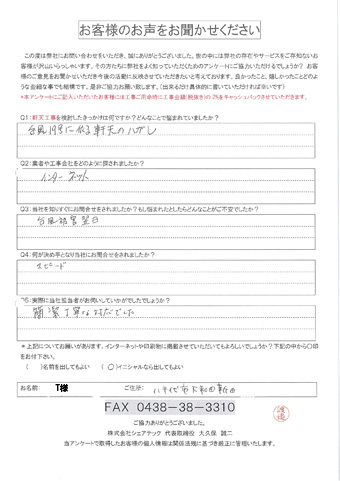 お客様のお声をお聞かせください
この度は弊社にお問い合わせをいただき、誠にありがとうございました。世の中には弊社の存在やサービスをご存知ないお
客様が沢山いらっしゃいます。その方たちに弊社をよく知っていただくためのアンケートにご協力いただけるでしょうか? お客
様のご意見をお聞かせいただき今後の活動に反映させていただきたいと考えております。良かったこと、嬉しかったことどのよ
うな些細な事でも結構です。是非ご協力お願い致します。(出来るだけ具体的に書いていただければ幸いです)
*本アンケートにご記入いただいたお客様には工事ご用命時に工事金額(税抜き)の2%をキャッシュバックさせていただきます。
Q1:軒天工事を検討したきっかけは何ですか?どんなことで悩まれていましたか?
台風19号に依る軒天のハガレ
Q2:業者や工事会社をどのように探されましたか?
インターネット
Q3:当社を知りすぐにお問合せをされましたか?もし悩まれたとしたらどんなことがご不安でしたか?
台風被害翌日
Q4:何が決め手となり当社にお問合せをされましたか?
スピード
Q5:実際に当社担当者がお伺いしていかがでしたでしょうか?
簡潔丁寧な対応でした
*上記についてお願いがあります。インターネットや印刷物に掲載させていただいてもよろしいでしょうか?下記の中から〇印
をお付下さい。
( )名前を出してもよい (〇)イニシャルなら出してもよい
お名前: T様 ご住所: 八千代市大和田新田
FAX 0438-38-3310
ご協力ありがとうございました。
株式会社シェアテック 代表取締役 大久保 誠二
当アンケートで取得したお客様の個人情報は関係法規に基づき厳正に管理いたします。